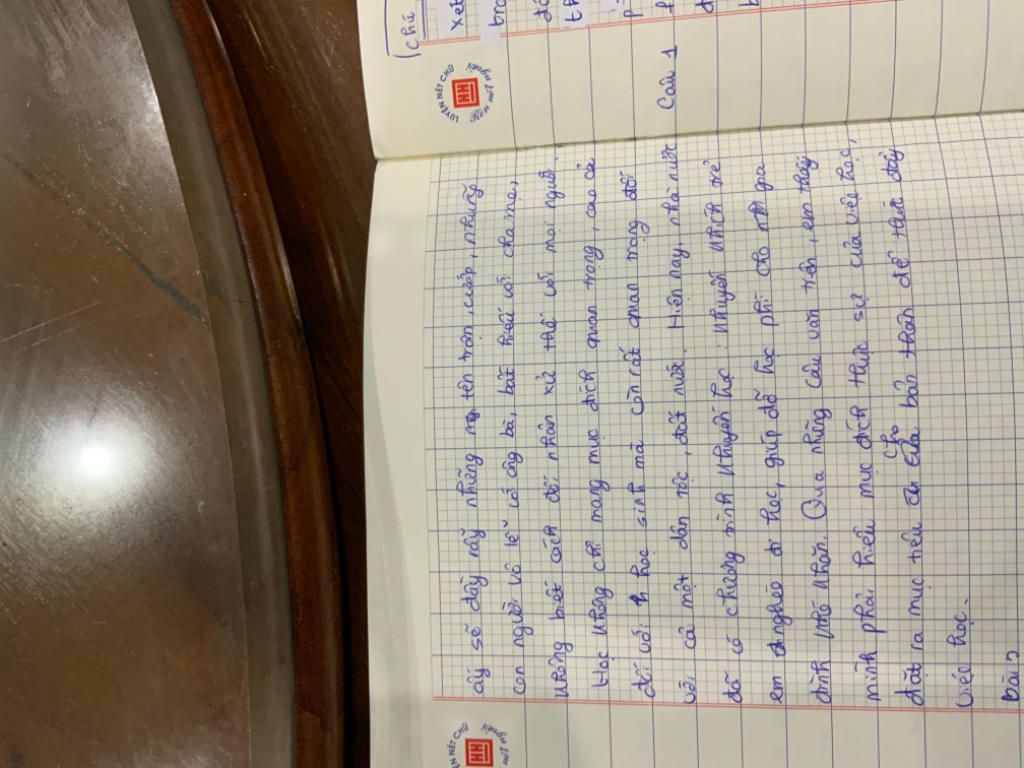 ấy sẽ đầy rẫy những tên trộm, cướp, những
con người vô lễ với ông bà, bất hiếu với cha mẹ,
không biết cách đối nhân xử thế với mọi người.
Học không chỉ mang mục đích quan trọng, cao cả
đối với học sinh mà còn rất quan trọng đối
với cả một dân tộc, đất nước. Hiện nay, nhà nước
đã có chương trình khuyến học: khuyến khích trẻ
em nghèo đi học, giúp đỡ học phí cho gia
đình khó khăn. Qua những câu văn trên, em thấy
mình phải hiểu mục đích thực sự của việc học,
đặt ra mục tiêu cho bản thân để thúc đẩy
việc học.
bài 2
Câu 1
(chú
xét
LUYỆN NÉT CHỮ
HH
LUYỆN NÉT CHỮ
HH
nết người